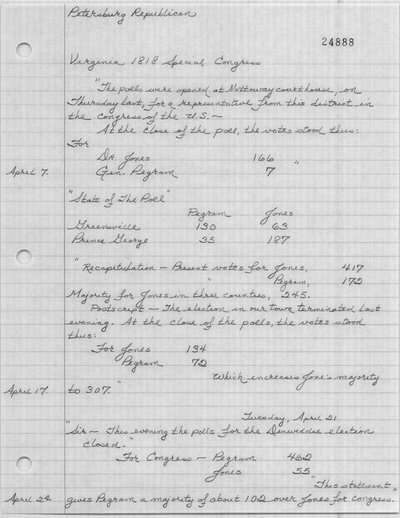 Petersburg Republican
24888
Virginia 1818 Special Congress
"The polls were opened at Nottoway courthouse, on
Thursday last, for a representative from this district in
the congress of the U.S.—
At the close of the poll, the votes stood thus:
For
Dr. Jones 166 "
April 7. Gen. Pegram 7
"State of The Poll"
Pegram Jones
Greensville 130 63
Prince George 35 187
"Recapitulation — Present votes for Jones, 417
" Pegram, 172
Majority for Jones in three counties, 245.
Postscript — The election in our town terminated last
evening. At the close of the polls, the votes stood
thus:
For Jones 134
Pegram 72
Which increases Jone's majority
April 17. to 307."
Tuesday, April 21
"Sir — This evening the polls for the Dinwiddie election
closed."
For Congress — Pegram 462
Jones 55
"This statement
April 24 gives Pegram a majority of about 102 over Jones for congress."